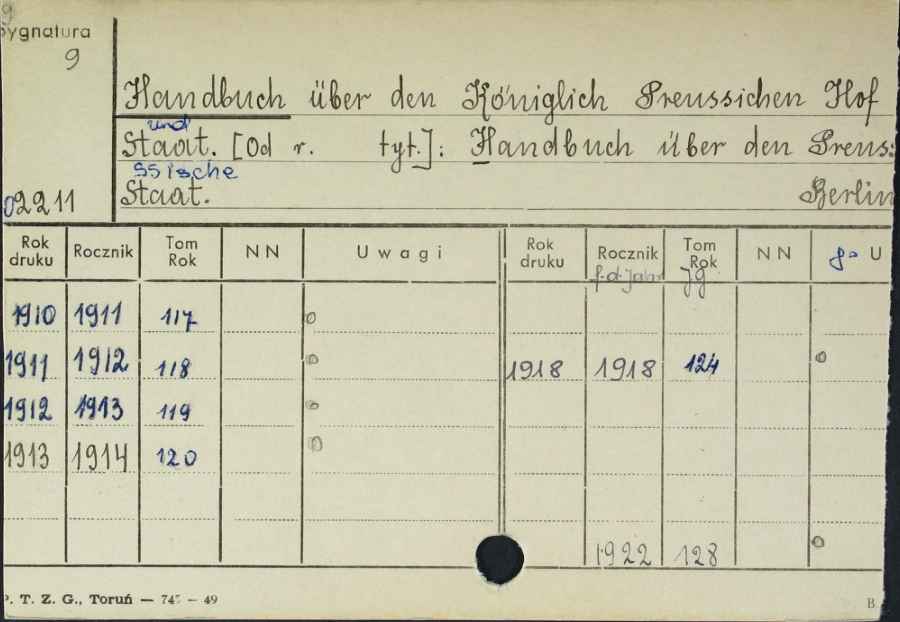 9
Sygnatura
9
Handbuch über den Königlich Preussichen Hof
und
Staat. [Od r. tyt.]: Handbuch über den Preus:
ssische
Staat. Berlin
02211
Rok druku Rocznik Tom Rok NN Uwagi Rok druku Rocznik Tom Rok NN 8° U
f.d.Jahr Jg
1910 1911 117
1911 1912 118 1918 1918 124
1912 1913 119
1913 1914 120
1922 128
P. T. Z. G., Toruń — 745 — 49 B